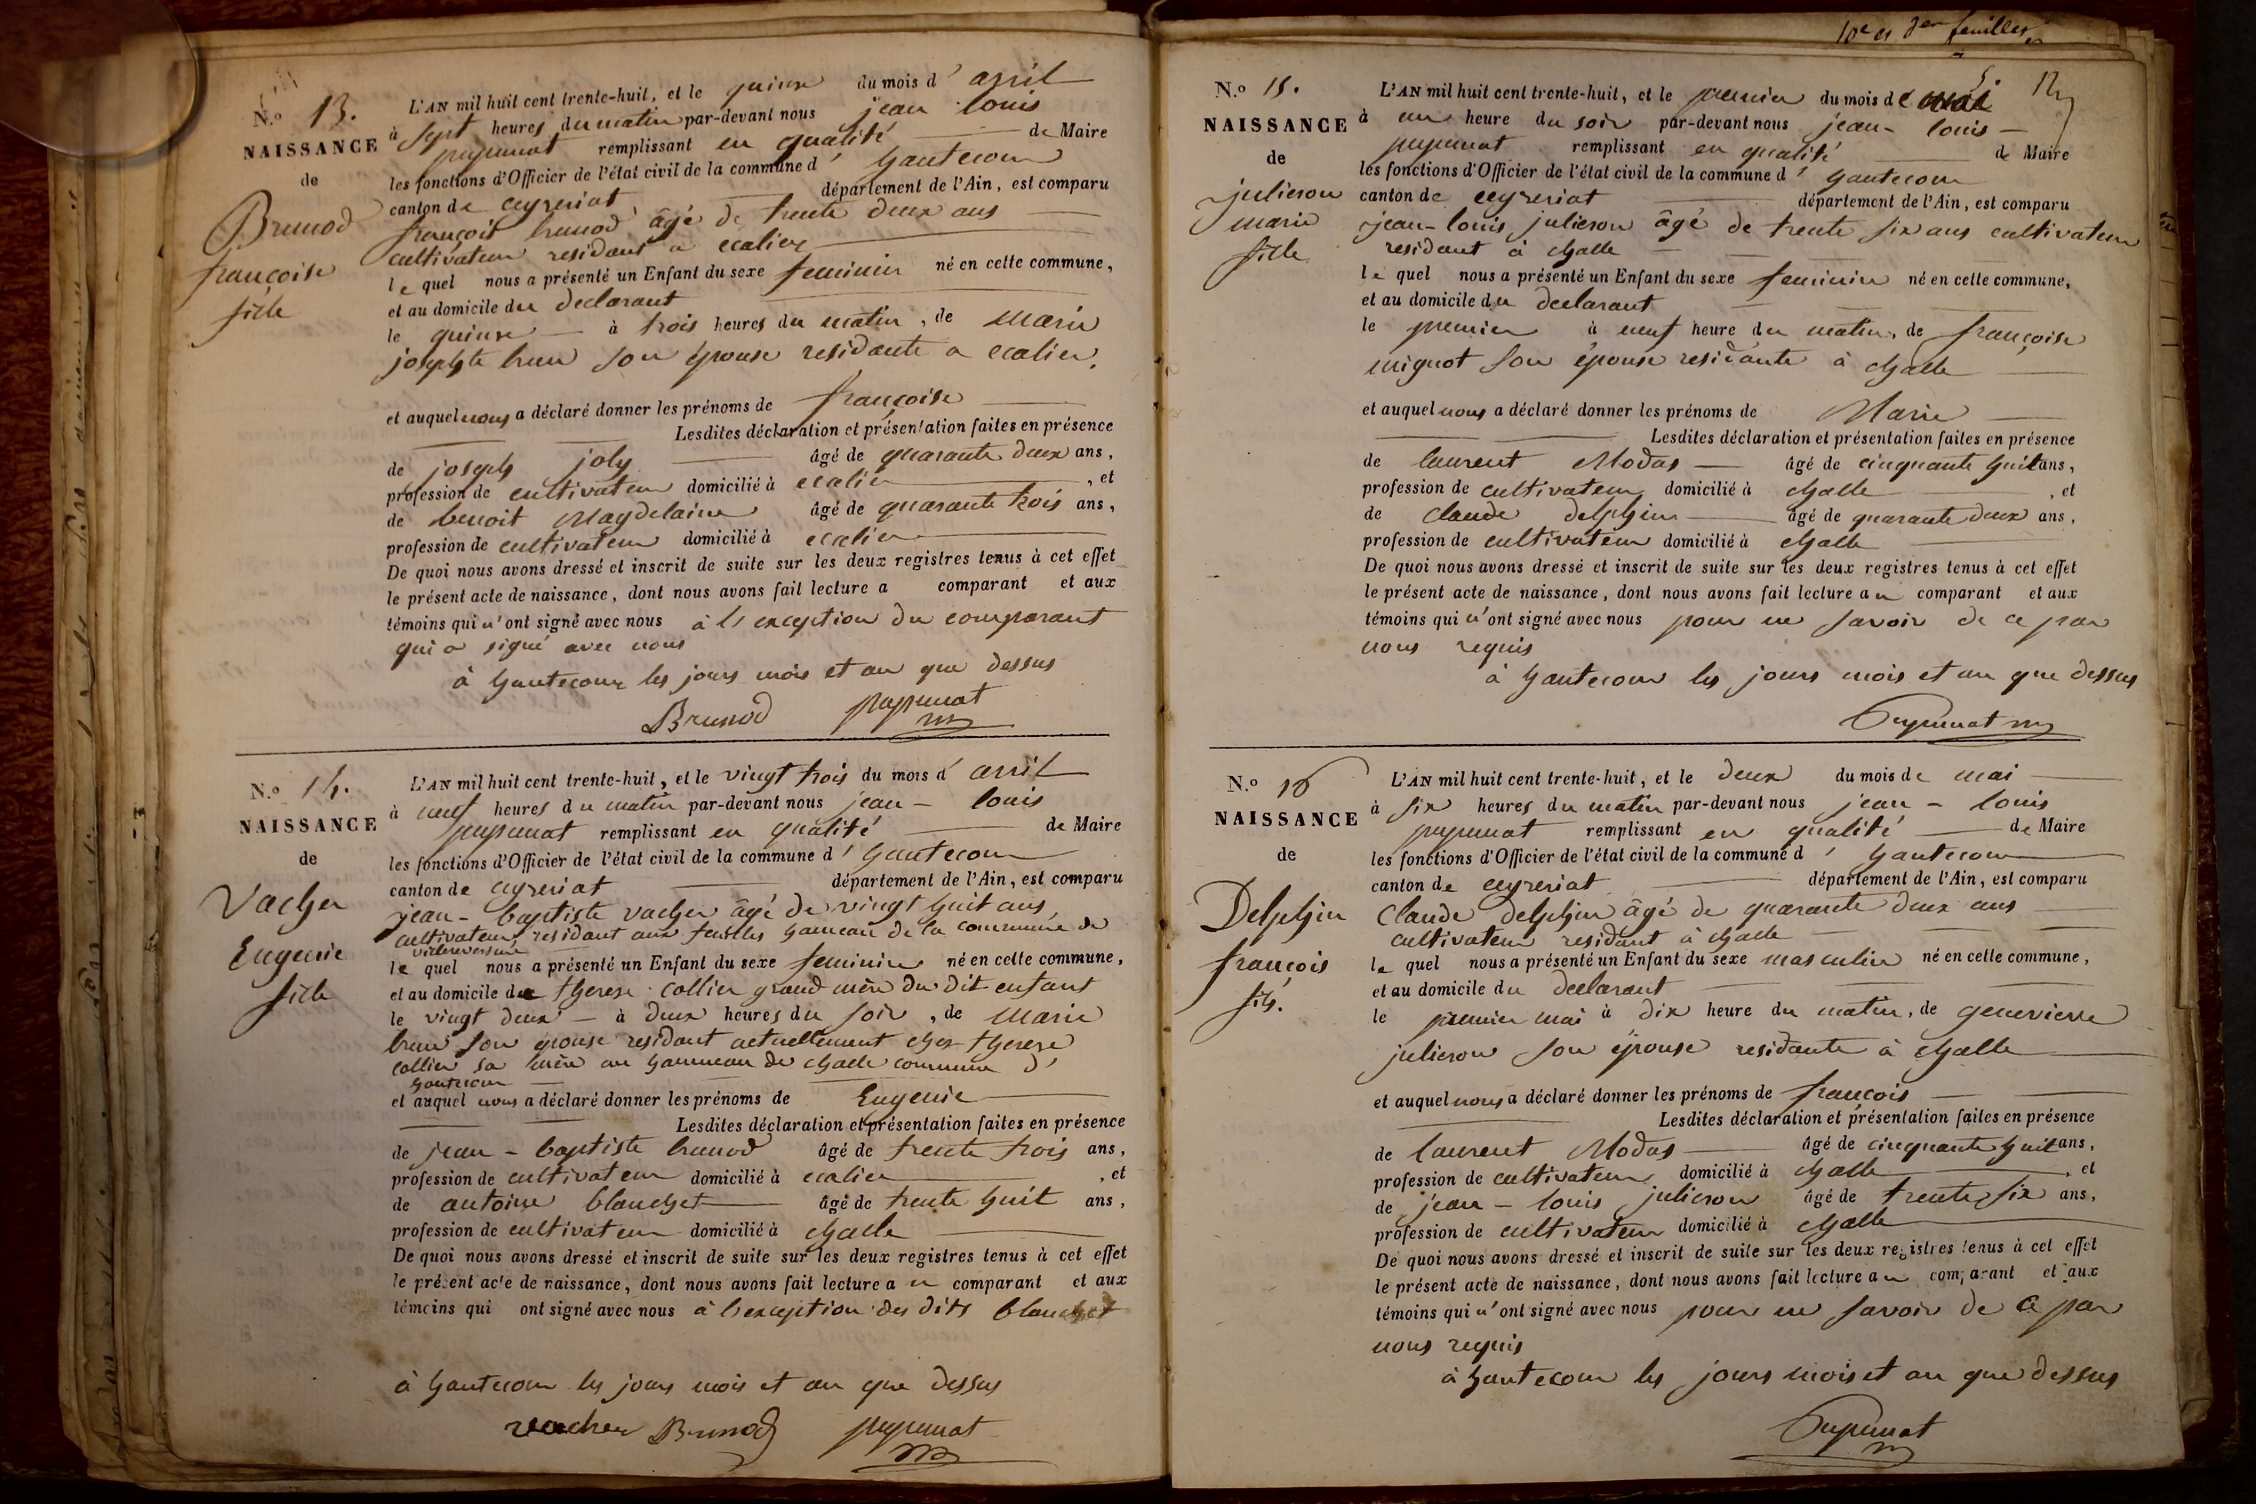 N.o 13.
NAISSANCE
de
Brunod
françoise
fille
L'AN mil huit cent trente-huit, et le quinze du mois d' avril
à sept heures du matin par-devant nous jean louis
pupunat remplissant en qualité de Maire
les fonctions d'Officier de l'état civil de la commune d' hautecour
canton de ceyzeriat département de l'Ain, est comparu
françois brunod âgé de trente deux ans
cultivateur residant a
le quel nous a présenté un Enfant du sexe feminin né en cette commune,
et au domicile du declarant
le quinze à trois heures du matin, de marie
josephte brun son épouse residante a
et auquel nous a déclaré donner les prénoms de françoise
Lesdites déclaration et présentation faites en présence
de joseph joly âgé de quarante deux ans,
profession de cultivateur domicilié à , et
de benoit Magdelaine âgé de quarante trois ans,
profession de cultivateur domicilié à
De quoi nous avons dressé et inscrit de suite sur les deux registres tenus à cet effet
le présent acte de naissance, dont nous avons fait lecture a comparant et aux
témoins qui n'ont signé avec nous à l'exception du comparant
qui a signé avec nous
à hautecour les jours mois et an que dessus
Brunod pupunat
N.o 14.
NAISSANCE
de
Vacher
Eugenie
fille
L'AN mil huit cent trente-huit, et le vingt trois du mois d' avril
à neuf heures du matin par-devant nous jean - louis
pupunat remplissant en qualité de Maire
les fonctions d'Officier de l'état civil de la commune d' hautecour
canton de ceyzeriat département de l'Ain, est comparu
jean - baptiste vacher âgé de vingt huit ans
cultivateur residant aux hameau de la commune de
villereversure
le quel nous a présenté un Enfant du sexe feminin né en cette commune,
et au domicile de therese collier grand mère du dit enfant
le vingt deux - à deux heures du soir, de marie
brun son epouse residant actuellement chez therese
collier sa mère au hammeau de challe commune d'
hautecour
et auquel nous a déclaré donner les prénoms de Eugenie
Lesdites déclaration et présentation faites en présence
de jean - baptiste brunod âgé de trente trois ans,
profession de cultivateur domicilié à , et
de antoine blanchet âgé de trente huit ans,
profession de cultivateur domicilié à challe
De quoi nous avons dressé et inscrit de suite sur les deux registres tenus à cet effet
le présent acte de naissance, dont nous avons fait lecture a u comparant et aux
témoins qui ont signé avec nous à l'exception des dits blanchet
à hautecour les jours mois et an que dessus
vacher Brunod pupunat
10e et 3er feuilles
N.o 15.
NAISSANCE
de
julieron
marie
fille
L'AN mil huit cent trente-huit, et le premier du mois de mai
à une heure du soir par-devant nous jean - louis
pupunat remplissant en qualité de Maire
les fonctions d'Officier de l'état civil de la commune d' hautecour
canton de ceyzeriat département de l'Ain, est comparu
jean - louis julieron âgé de trente six ans cultivateur
residant à challe
le quel nous a présenté un Enfant du sexe feminin né en cette commune,
et au domicile du declarant
le premier à neuf heure du matin, de françoise
mignot son épouse residante à challe
et auquel nous a déclaré donner les prénoms de Marie
Lesdites déclaration et présentation faites en présence
de laurent Modas âgé de cinquante huit ans,
profession de cultivateur domicilié à challe , et
de claude delphin âgé de quarante deux ans,
profession de cultivateur domicilié à challe
De quoi nous avons dressé et inscrit de suite sur les deux registres tenus à cet effet
le présent acte de naissance, dont nous avons fait lecture a u comparant et aux
témoins qui n'ont signé avec nous pour ne savoir de ce par
nous requis
à hautecour les jours mois et an que dessus
Pupunat
N.o 16
NAISSANCE
de
Delphin
françois
fils.
L'AN mil huit cent trente-huit, et le deux du mois de mai
à six heures du matin par-devant nous jean - louis
pupunat remplissant en qualité de Maire
les fonctions d'Officier de l'état civil de la commune d' hautecour
canton de ceyzeriat département de l'Ain, est comparu
Claude delphin âgé de quarante deux ans
cultivateur residant à challe
le quel nous a présenté un Enfant du sexe masculin né en cette commune,
et au domicile du declarant
le premier mai à dix heure du matin, de genevieve
julieron son épouse residante à challe
et auquel nous a déclaré donner les prénoms de françois
Lesdites déclaration et présentation faites en présence
de laurent Modas âgé de cinquante huit ans,
profession de cultivateur domicilié à challe , et
de jean - louis julieron âgé de trente six ans,
profession de cultivateur domicilié à challe
De quoi nous avons dressé et inscrit de suite sur les deux registres tenus à cet effet
le présent acte de naissance, dont nous avons fait lecture a u comparant et aux
témoins qui n'ont signé avec nous pour ne savoir de ce par
nous requis
à hautecour les jours mois et an que dessus
Pupunat